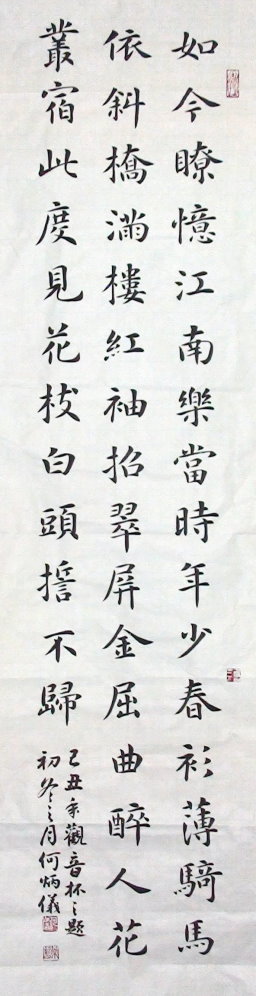 如今瞭憶江南樂當時年少春衫薄騎馬
依斜橋滿樓紅袖招翠屏金屈曲醉人花
叢宿此度見花枝白頭誓不歸
己丑年觀音杯之題
初冬之月何炳儀